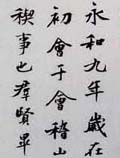 永和九年歲在
初會于會稽山
稧事也羣賢畢